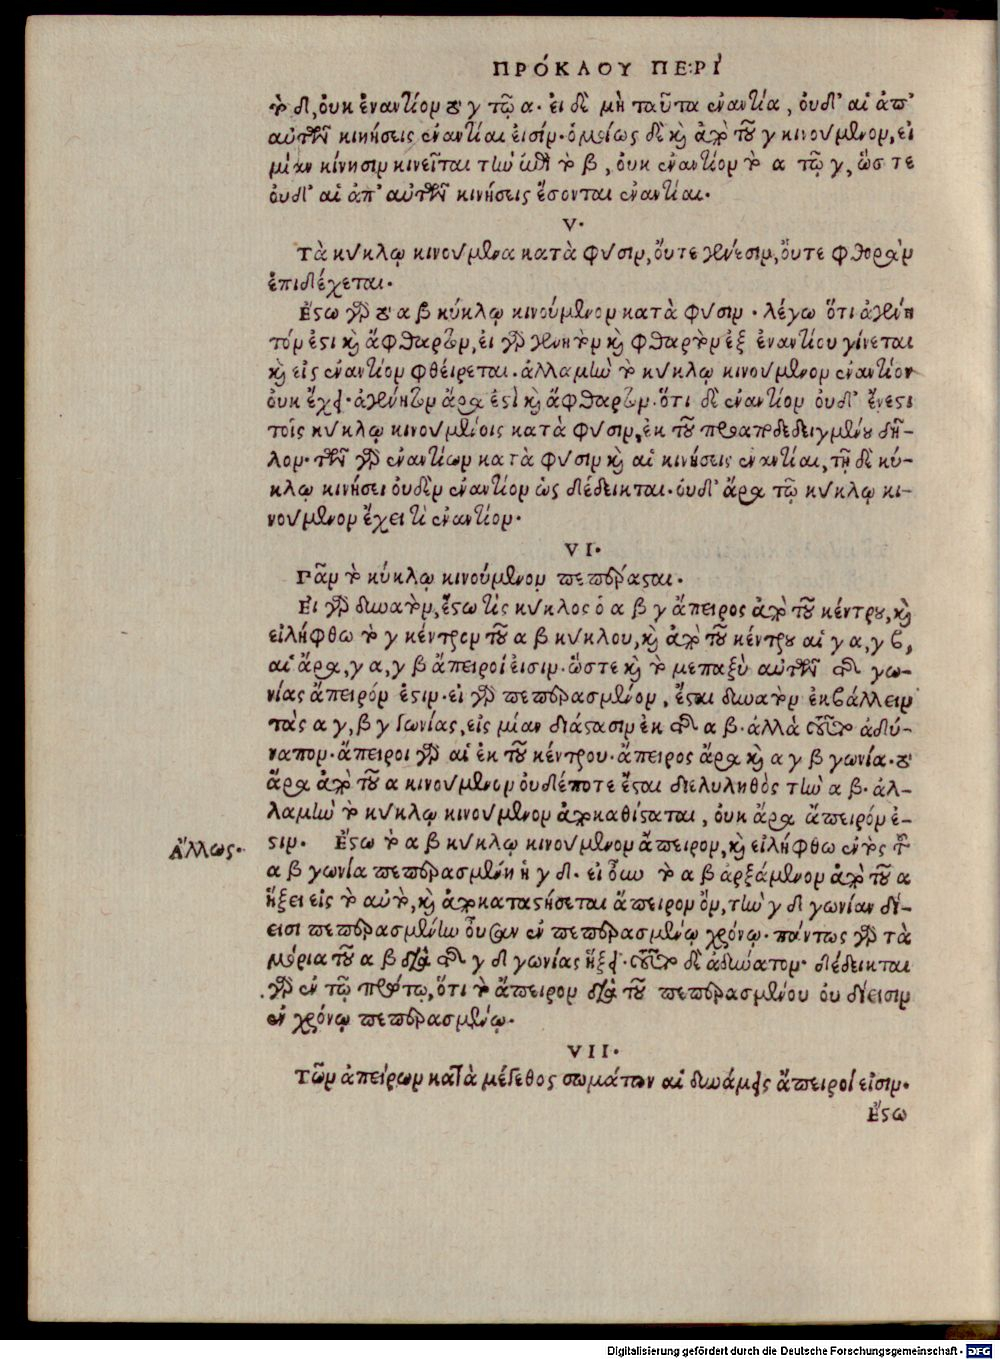 ΠΡΌΚΛΟΥ ΠΕΡῚ
τὸ δ, ὀυκ ἐναντίον τὸ γ τῷ α. ἐι δὲ μὴ ταῦτα ἐναντία, ὀυδ' αἱ ἀπ'
αὐτῶν κινήσεις ἐναντίαι ἐισίν. ὁμοίως δὲ καὶ ἀπὸ τοῦ γ κινούμενον, εἰ
μίαν κίνησιν κινεῖται τὴν ἐπὶ τὸ β, ὀυκ ἐναντίον τὸ α τῷ γ, ὥστε
ὀυδ' αἱ ἀπ' αὐτῶν κινήσεις ἔσονται ἐναντίαι.
V.
Τὰ κύκλῳ κινούμενα κατὰ φύσιν, ὄυτε γένεσιν, ὄυτε φθορὰν
ἐπιδέχεται.
Ἔστω γὰρ τὸ α β κύκλῳ κινούμενον κατὰ φύσιν. λέγω ὅτι ἀγένη
τόν ἐστι καὶ ἄφθαρτον, ἐι γὰρ γενητὸν καὶ φθαρτὸν ἐξ ἐναντίου γίνεται
καὶ εἰς ἐναντίον φθείρεται. ἀλλαμὴν τὸ κύκλῳ κινούμενον ἐναντίον
ὀυκ ἔχει. ἀγένητον ἄρα ἐστὶ καὶ ἄφθαρτον. ὅτι δὲ ἐναντίον ὀυδ' ἔνεστι
τοῖς κύκλῳ κινουμένοις κατὰ φύσιν, ἐκ τοῦ προαποδεδειγμένου δῆ-
λον. τῶν γὰρ ἐναντίων κατὰ φύσιν καὶ αἱ κινήσεις ἐναντίαι, τῇ δὲ κύ-
κλῳ κινήσει ὀυδὲν ἐναντίον ὡς δέδεικται. ὀυδ' ἄρα τῷ κύκλῳ κι-
νούμενον ἔχει τὶ ἐναντίον.
VI.
Πᾶν τὸ κύκλῳ κινούμενον πεπέρασται.
Ἐι γὰρ δυνατὸν, ἔστω τὶς κύκλος ὁ α β γ ἄπειρος ἀπὸ τοῦ κέντρου, καὶ
εἰλήφθω τὸ γ κέντρον τοῦ α β κύκλου, καὶ ἀπὸ τοῦ κέντρου αἱ γ α, γ β,
αἱ ἄρα, γ α, γ β ἄπειροί ἐισιν. ὥστε καὶ τὸ μεταξὺ αὐτῶν τῆς γω-
νίας ἄπειρόν ἐστιν. ἐι γὰρ πεπερασμένον, ἔσται δυνατὸν ἐκβάλλειν
τὰς α γ, β γ γωνίας, εἰς μίαν διάστασιν ἐκ τῆς α β. ἀλλὰ τοῦτο ἀδύ-
νατον. ἄπειροι γὰρ αἱ ἐκ τοῦ κέντρου. ἄπειρος ἄρα καὶ α γ β γωνία. τὸ
ἄρα ἀπὸ τοῦ α κινούμενον ὀυδέποτε ἔσται διεληλυθὸς τὴν α β. ἀλ-
λαμὴν τὸ κύκλῳ κινούμενον ἀποκαθίσταται, ὀυκ ἄρα ἄπειρόν ἐ-
στιν. Ἔστω τὸ α β κύκλῳ κινούμενον ἄπειρον, καὶ εἰλήφθω ἐντὸς τοῦ
Ἄλλως.
α β γωνία πεπερασμένη ἡ γ δ. εἰ ὄυν τὸ α β ἀρξάμενον ἀπὸ τοῦ α
ἥξει εἰς τὸ αὐτὸ, καὶ ἀποκαταστήσεται ἄπειρον ὂν, τὴν γ δ γωνίαν δί-
εισι πεπερασμένην οὖσαν ἐν πεπερασμένῳ χρόνῳ. πάντως γὰρ τὰ
μόρια τοῦ α β διὰ τῆς γ δ γωνίας ἥξει. τοῦτο δὲ ἀδύνατον. δέδεικται
γὰρ ἐν τῷ πρώτῳ, ὅτι τὸ ἄπειρον διὰ τοῦ πεπερασμένου ὀυ δίεισιν
ἐν χρόνῳ πεπερασμένῳ.
VII.
Τῶν ἀπείρων κατὰ μέγεθος σωμάτων αἱ δυνάμεις ἄπειροί εἰσιν.
Ἔστω
Digitalisierung gefördert durch die Deutsche Forschungsgemeinschaft - DFG